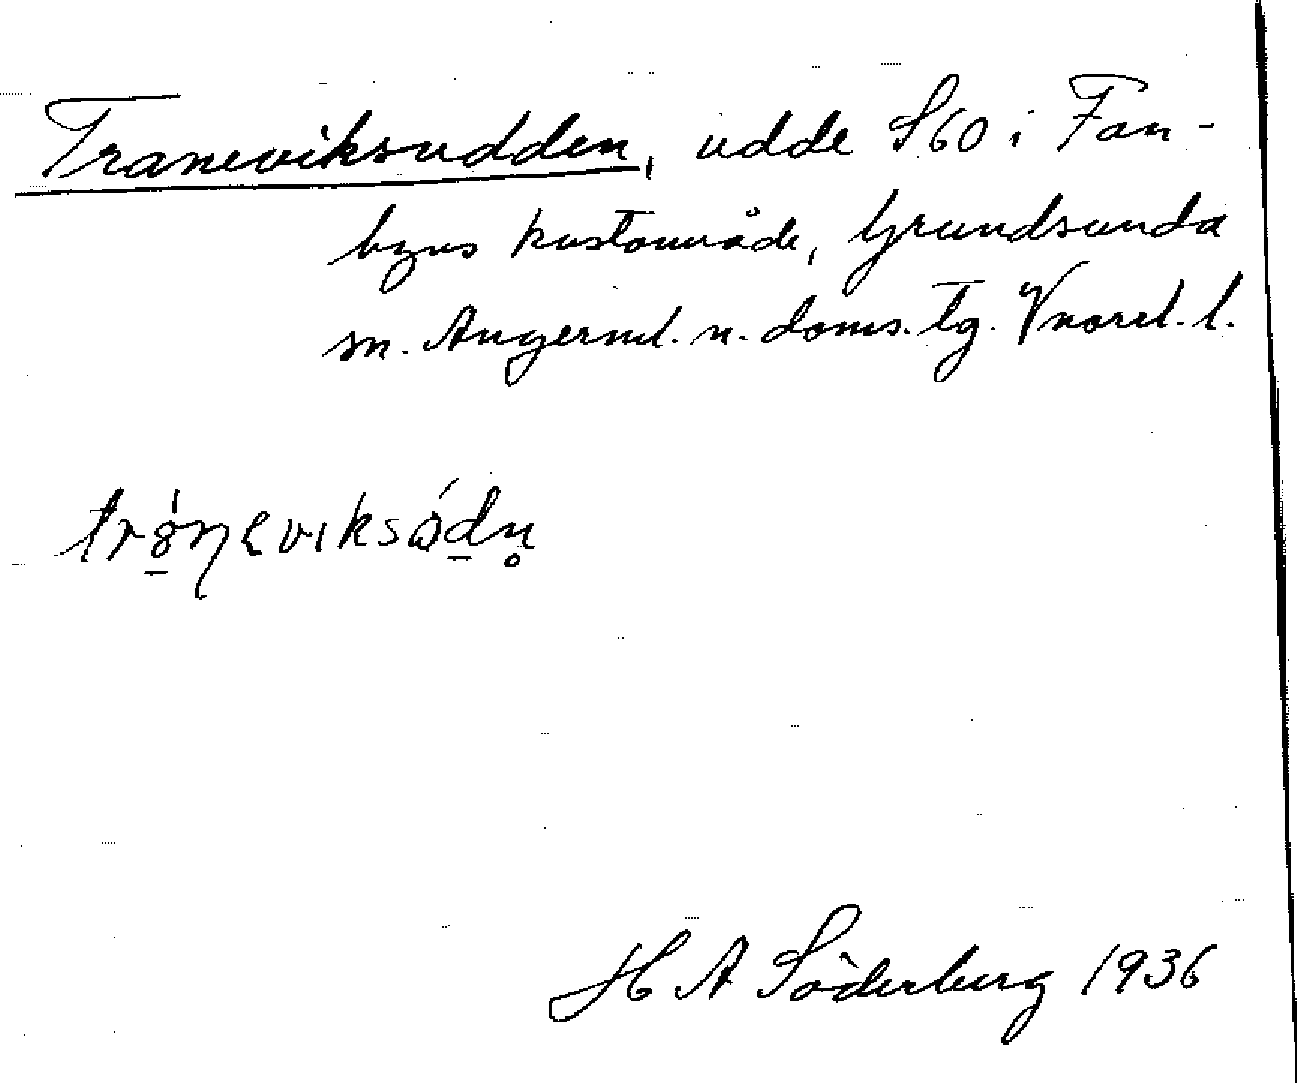 Traneviksudden, udde SO i Fan-
byns kustområde, Grundsunda
sn. Ångerml. n. doms. tg. Vnorrl. l.
H A Söderberg 1936